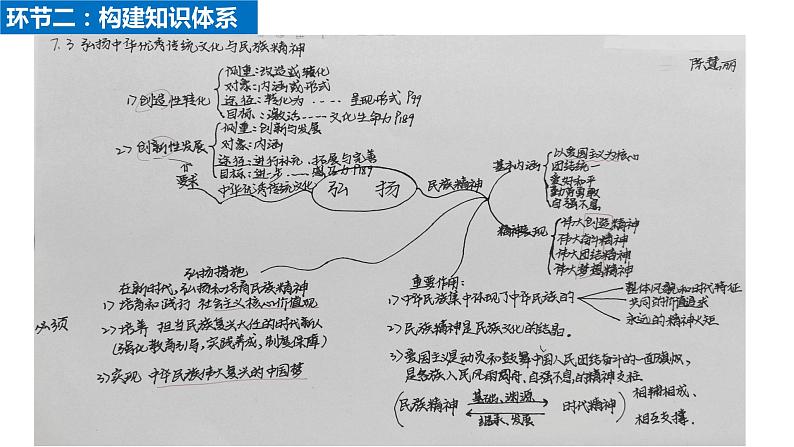 环节二：构建知识体系
7.3 弘扬中华优秀传统文化与民族精神
陈慧丽
1)创造性转化
侧重：改造或转化
对象：内涵或形式
途径：转化为 ..... 呈现形式 P99
目标：激活.....文化生命力 P189
2)创新性发展
侧重：创新与发展
对象：内涵
途径：进行补充、拓展与完善
目标：进一步.....感召力 P189
要求
中华优秀传统文化
弘 扬
民族精神
基本内涵
以爱国主义为核心
团结统一
爱好和平
勤劳勇敢
自强不息
精神表现
伟大创造精神
伟大奋斗精神
伟大团结精神
伟大梦想精神
弘扬措施
在新时代，弘扬和培育民族精神
必须
1)培育和践行 社会主义核心价值观
2)培养 担当民族复兴大任的时代新人
(强化教育引导，实践养成，制度保障)
3)实现 中华民族伟大复兴的中国梦
重要作用：
1)中华民族集中体现了中华民族的
整体风貌和时代特征
共同的价值追求
永远的精神火炬
2)民族精神是民族文化的结晶。
3)爱国主义是动员和鼓舞中国人民团结奋斗的一面旗帜，
是各族人民风雨同舟、自强不息的精神支柱
(民族精神 基础、渊源 时代精神)
继承、发展
相辅相成、
相互支撑.